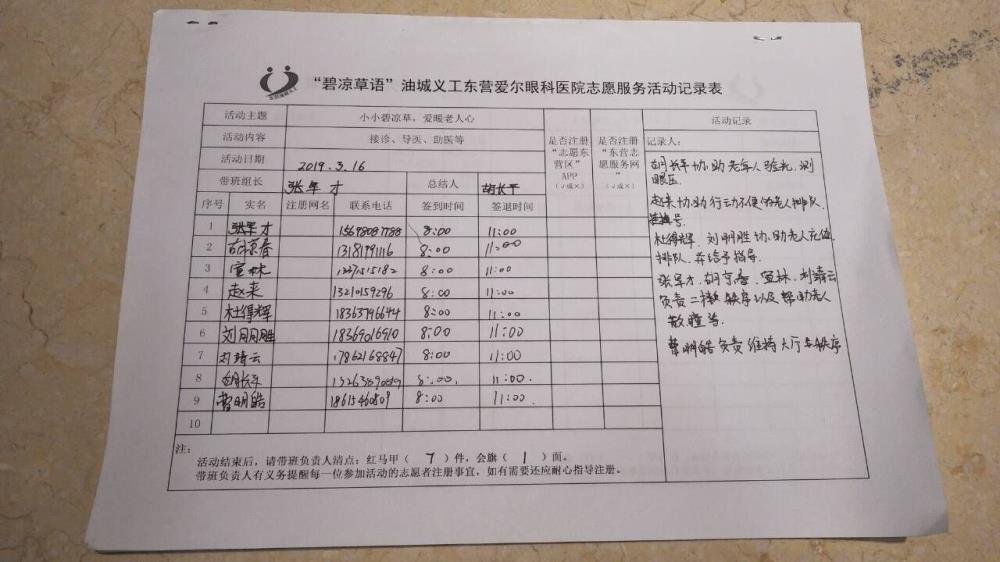 “碧凉草语”油城义工东营爱尔眼科医院志愿服务活动记录表
活动主题 小小碧凉草，爱暖老人心 是否注册“志愿东营区”APP（√或×） 是否注册“东营志愿服务网”（√或×） 活动记录
活动内容 接诊、导医、助医等
活动日期 2019.3.16
带班组长 张军才 总结人 胡长平
序号 实名 注册网名 联系电话 签到时间 签退时间
1 张军才 15698087788 8:00 11:00
2 13181991116 8:00 11:00
3 宣林 8:00 11:00
4 赵来 13210159296 8:00 11:00
5 杜得辉 18363796644 8:00 11:00
6 刘明胜 18369016910 8:00 11:00
7 刘靖云 17862168847 8:00 11:00
8 胡长平 8:00. 11:00.
9 曹明皓 18615460809 8:00 11:00.
10
记录人：
胡长平协助老年人验光，测
眼压.
赵来协助行动不便的老人排队.
挂号.
杜得辉、刘明胜协助老人充值、
排队.并给予指导.
张军才、宣林、刘靖云
负责二楼秩序以及帮助老人
散瞳等.
曹明皓负责维持大厅秩序
注：
活动结束后，请带班负责人清点：红马甲（ 7 ）件，会旗（ 1 ）面。
带班负责人有义务提醒每一位参加活动的志愿者注册事宜，如有需要还应耐心指导注册。